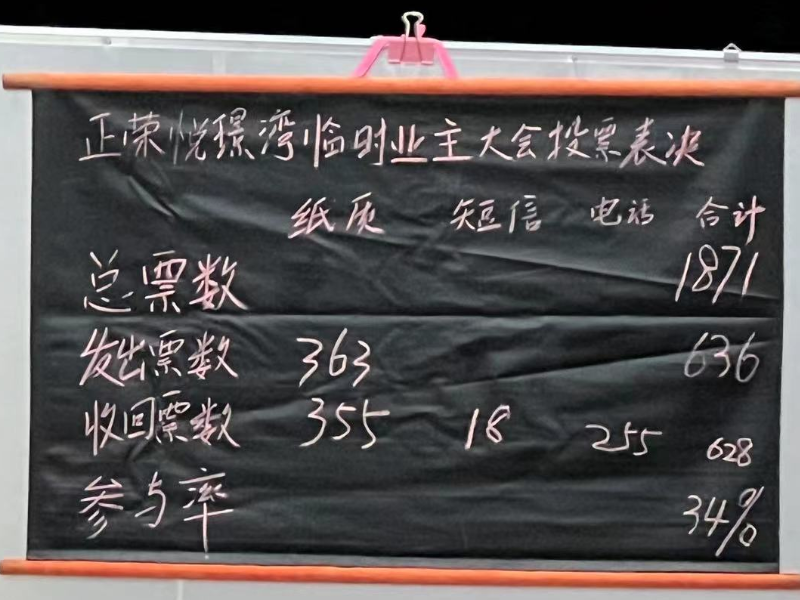 正荣悦璟湾临时业主大会投票表决
纸质 短信 电话 合计
总票数 1871
发出票数 363 636
收回票数 355 18 255 628
参与率 34%